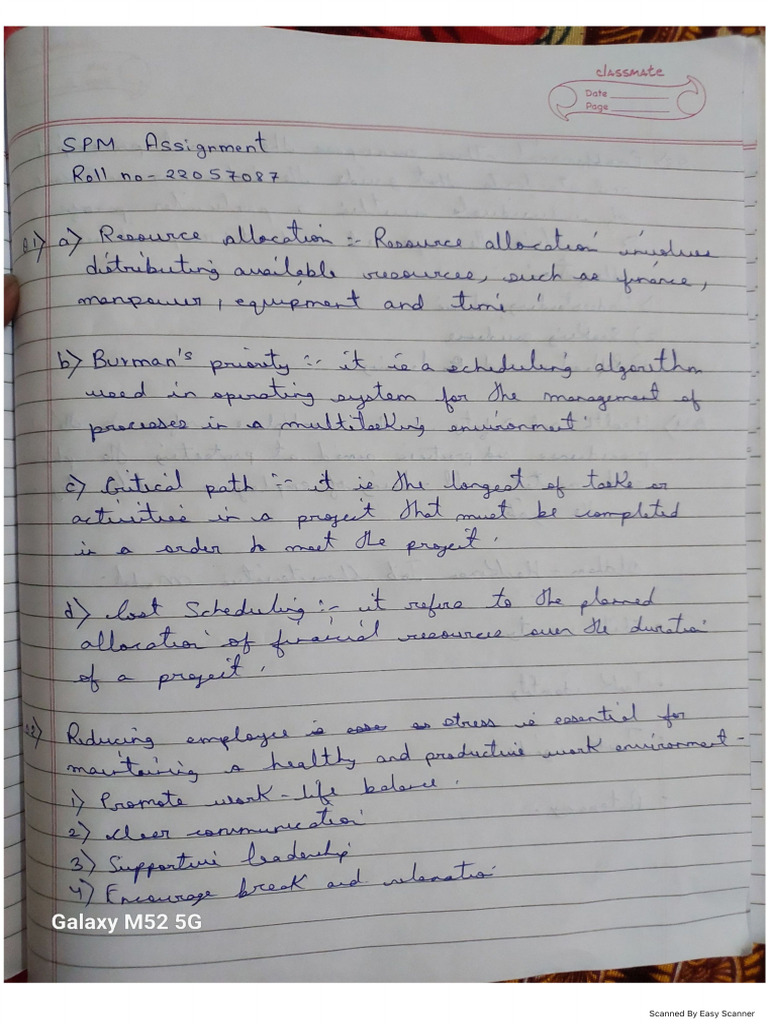 classmate
Date
Page
SPM Assignment
Roll no - 22057087
Q.1) a) Resource allocation :- Resource allocation involves
distributing available resources, such as finance,
manpower, equipment and time.
b) Burman's priority :- it is a scheduling algorithm
used in operating system for the management of
processes in a multitasking environment.
c) Critical path :- it is the longest of tasks or
activities in a project that must be completed
in a order to meet the project.
d) Cost Scheduling :- it refers to the planned
allocation of financial resources over the duration
of a project.
2) Reducing employee stress is essential for
maintaining a healthy and productive work environment -
1) Promote work-life balance.
2) clear communication
3) Supportive leadership
4) Encourage break and relaxation
Galaxy M52 5G
Scanned By Easy Scanner